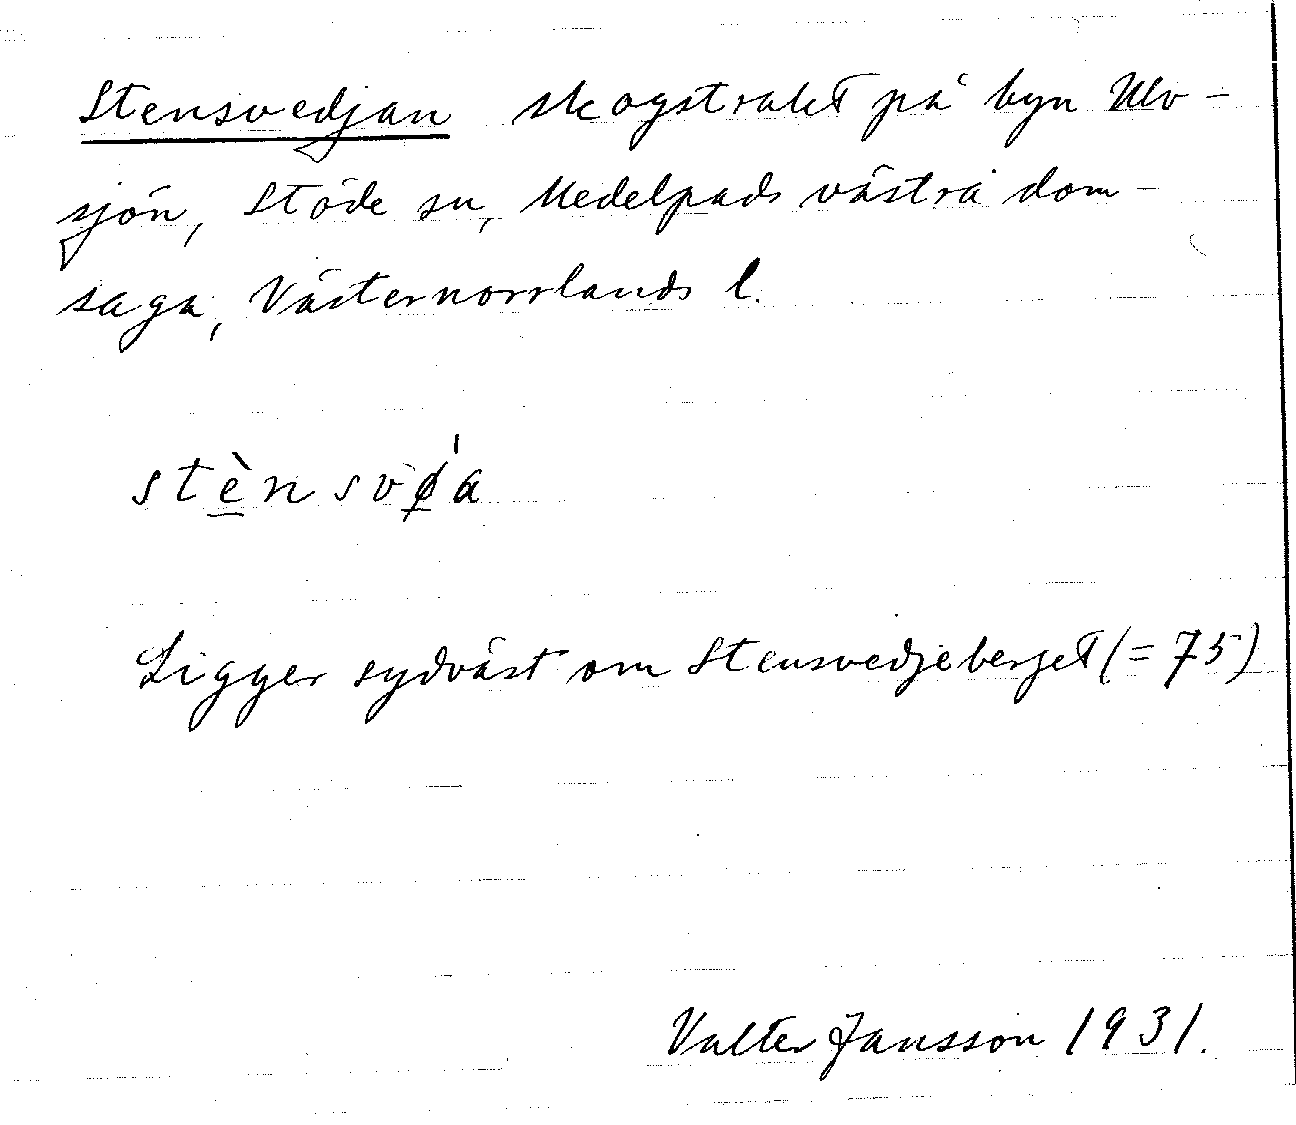 Stensvedjan skogstrakt på byn Ulv-
sjön, Stöde sn, Medelpads västra dom-
saga, Västernorrlands l.
Ligger sydväst om Stensvedjeberget (= 75)
Valter Jansson 1931.